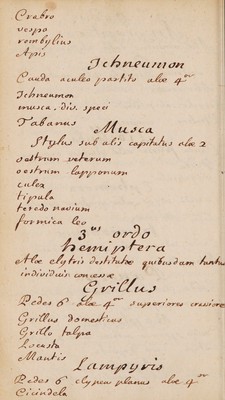 Crabro
vespo
vombylius
Apis
Ichneumon
Cauda aculeo partito alæ 4
Ichneumon
musca. div. speci
Tabanus
Musca
Stylus sub alis capitatus alæ 2
oestrum veterum
oestrum lapponum
culex
tipula
teredo navium
formica leo
3us ordo
hemiptera
Alæ elytris destitutæ quibusdam tantum
individuis concessæ
Grillus
Pedes 6 alæ 4 superiores crassiores
Grillus domesticus
Grillo talpa
Locusta
Mantis
Lampyris
Pedes 6 clypeus planus alæ 4
Cicindela